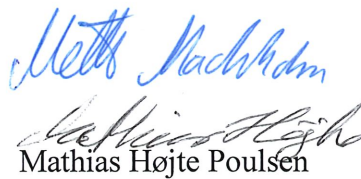 Mette Machholm
Mathias Højte
Mathias Højte Poulsen